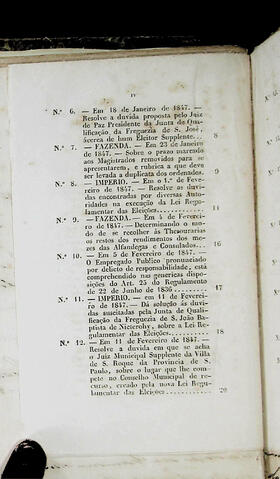 IV
N.º 6. — Em 18 de Janeiro de 1847. —
Resolve a duvida proposta pelo Juiz
de Paz Presidente da Junta de Qua-
lificação da Freguezia de S. José,
ácerca de hum Eleitor Supplente... 8
N.º 7. — FAZENDA. — Em 23 de Janeiro
de 1847. — Sobre o prazo marcado
aos Magistrados removidos para se
apresentarem, e rubrica a que deve
ser levada a duplicata dos ordenados. 9
N.º 8. — IMPERIO. — Em o 1.º de Feve-
reiro de 1847. — Resolve as duvi-
das encontradas por diversas Auto-
ridades na execução da Lei Regu-
lamentar das Eleições 11
N.º 9. — FAZENDA. — Em 4 de Feverei-
ro de 1847. — Determinando o mo-
do de se recolher ás Thesourarias
os restos dos rendimentos dos me-
zes das Alfandegas e Consulados... 16
N.º 10. — Em 5 de Fevereiro de 1847. —
O Empregado Publico pronunciado
por delicto de responsabilidade, está
comprehendido nas genericas dispo-
sições do Art. 25 do Regulamento
de 22 de Junho de 1836 17
N.º 11. — IMPERIO. — em 11 de Feverei-
ro de 1847. — Dá solução ás duvi-
das suscitadas pela Junta de Quali-
ficação da Freguezia de S. João Ba-
ptista de Nicterohy, sobre a Lei Re-
gulamentar das Eleições 18
N.º 12. — Em 11 de Fevereiro de 1847. —
Resolve a duvida em que se acha
o Juiz Municipal Supplente da Villa
de S. Roque da Provincia de S.
Paulo, sobre o lugar que lhe com-
pete no Conselho Municipal de re-
curso, creado pela nova Lei Regu-
lamentar das Eleições 20